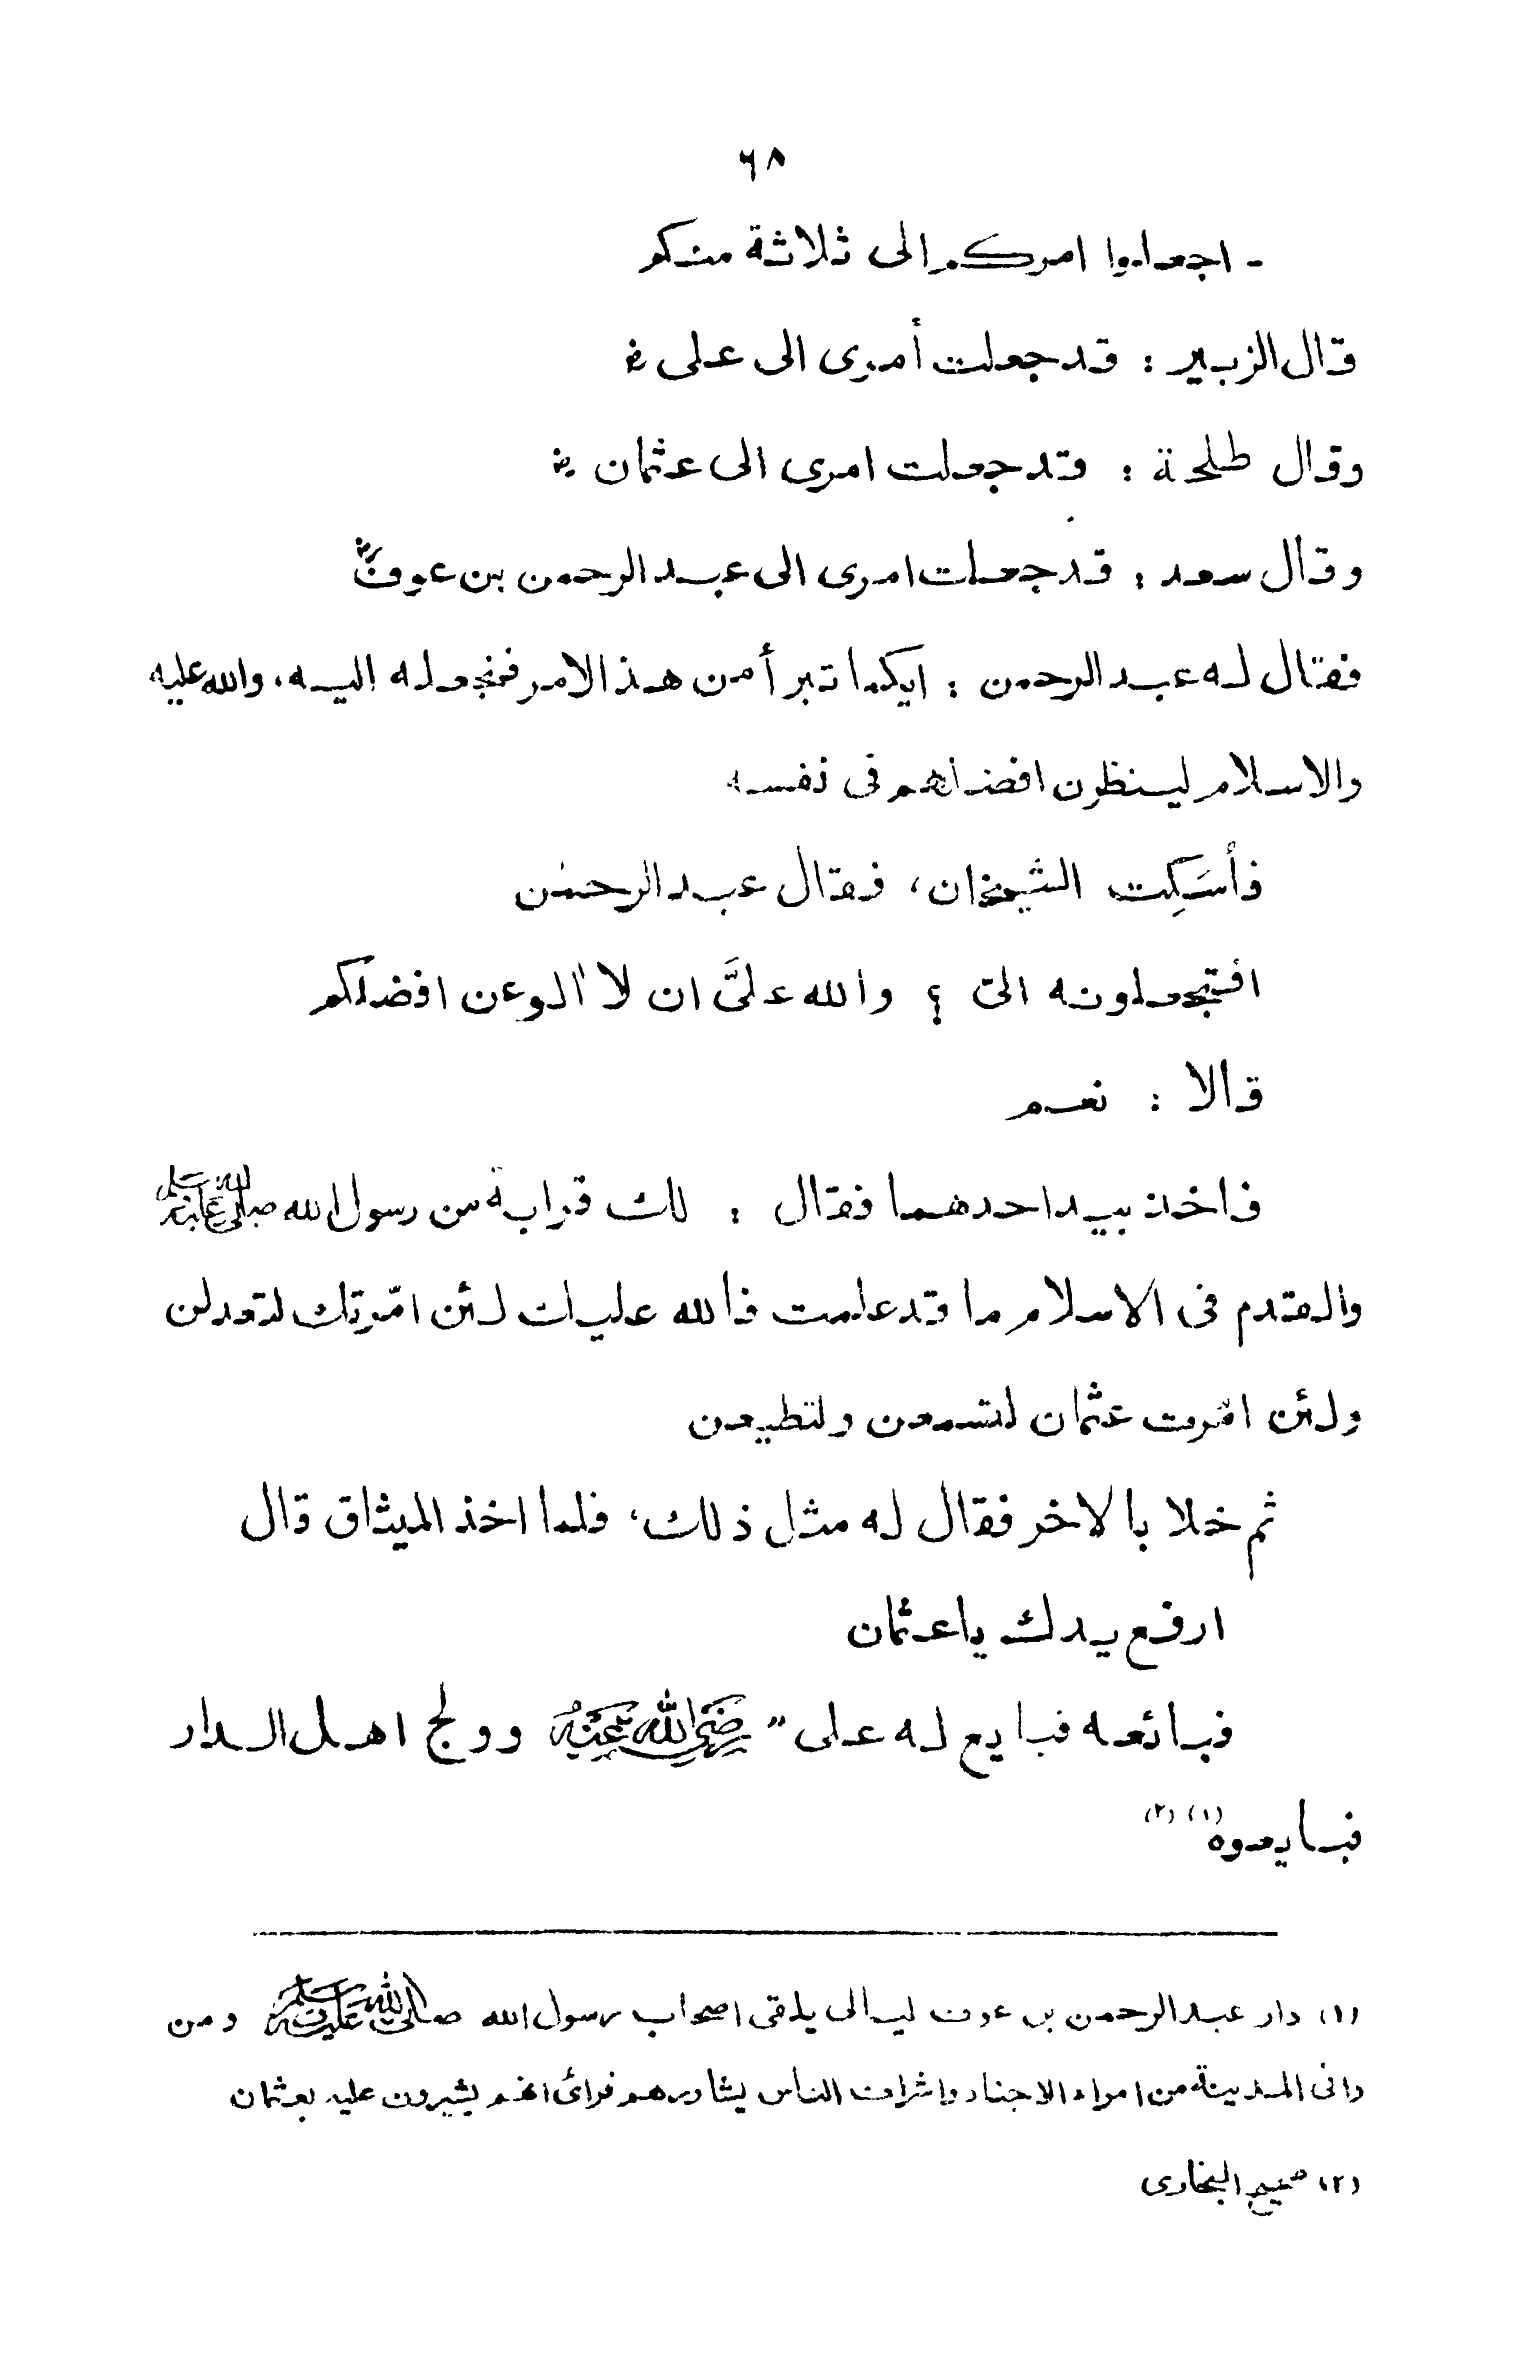 ٦٨
- اجعلوا امركم الى ثلاثة منكم
قال الزبير : قد جعلت أمرى الى على رض
وقال طلحة : وقد جعلت امرى الى عثمان رض
وقال سعد : قد جعلت امرى الى عبد الرحمن بن عوف رض
فقال له عبد الرحمن : ايكما تبرأ من هذ الامر فنجعله اليه، والله عليه
والاسلام لينظرن افضلهم فى نفسه
فأسكِت الشيخان، فقال عبد الرحمٰن
افتجعلونه الىّ ؟ والله علىَّ ان لا آلو عن افضلكم
قالا : نعم
فاخذ بيد احدهما فقال : لك قرابة من رسول الله صلى الله عليه وسلم
والقدم فى الاسلام ما قد علمت فالله عليك لئن امّرتك لتعدلن
ولئن امّرت عثمان لتسمعن ولتطيعن
ثم خلا بالاخر فقال له مثل ذلك، فلما اخذ الميثاق قال
ارفع يدك ياعثمان
فبائعه فبايع له على " رضى الله عنه وولج اهل الدار
فبايعوه (١) (٢)
(١) دار عبد الرحمن بن عوف ليالى يلقى اصحاب رسول الله صلى الله عليه وسلم ومن
وافى المدينة من امراء الاجناد واشراف الناس يشاورهم فرائ انهم يشيرون عليه بعثمان
(٢) صحيح البخارى